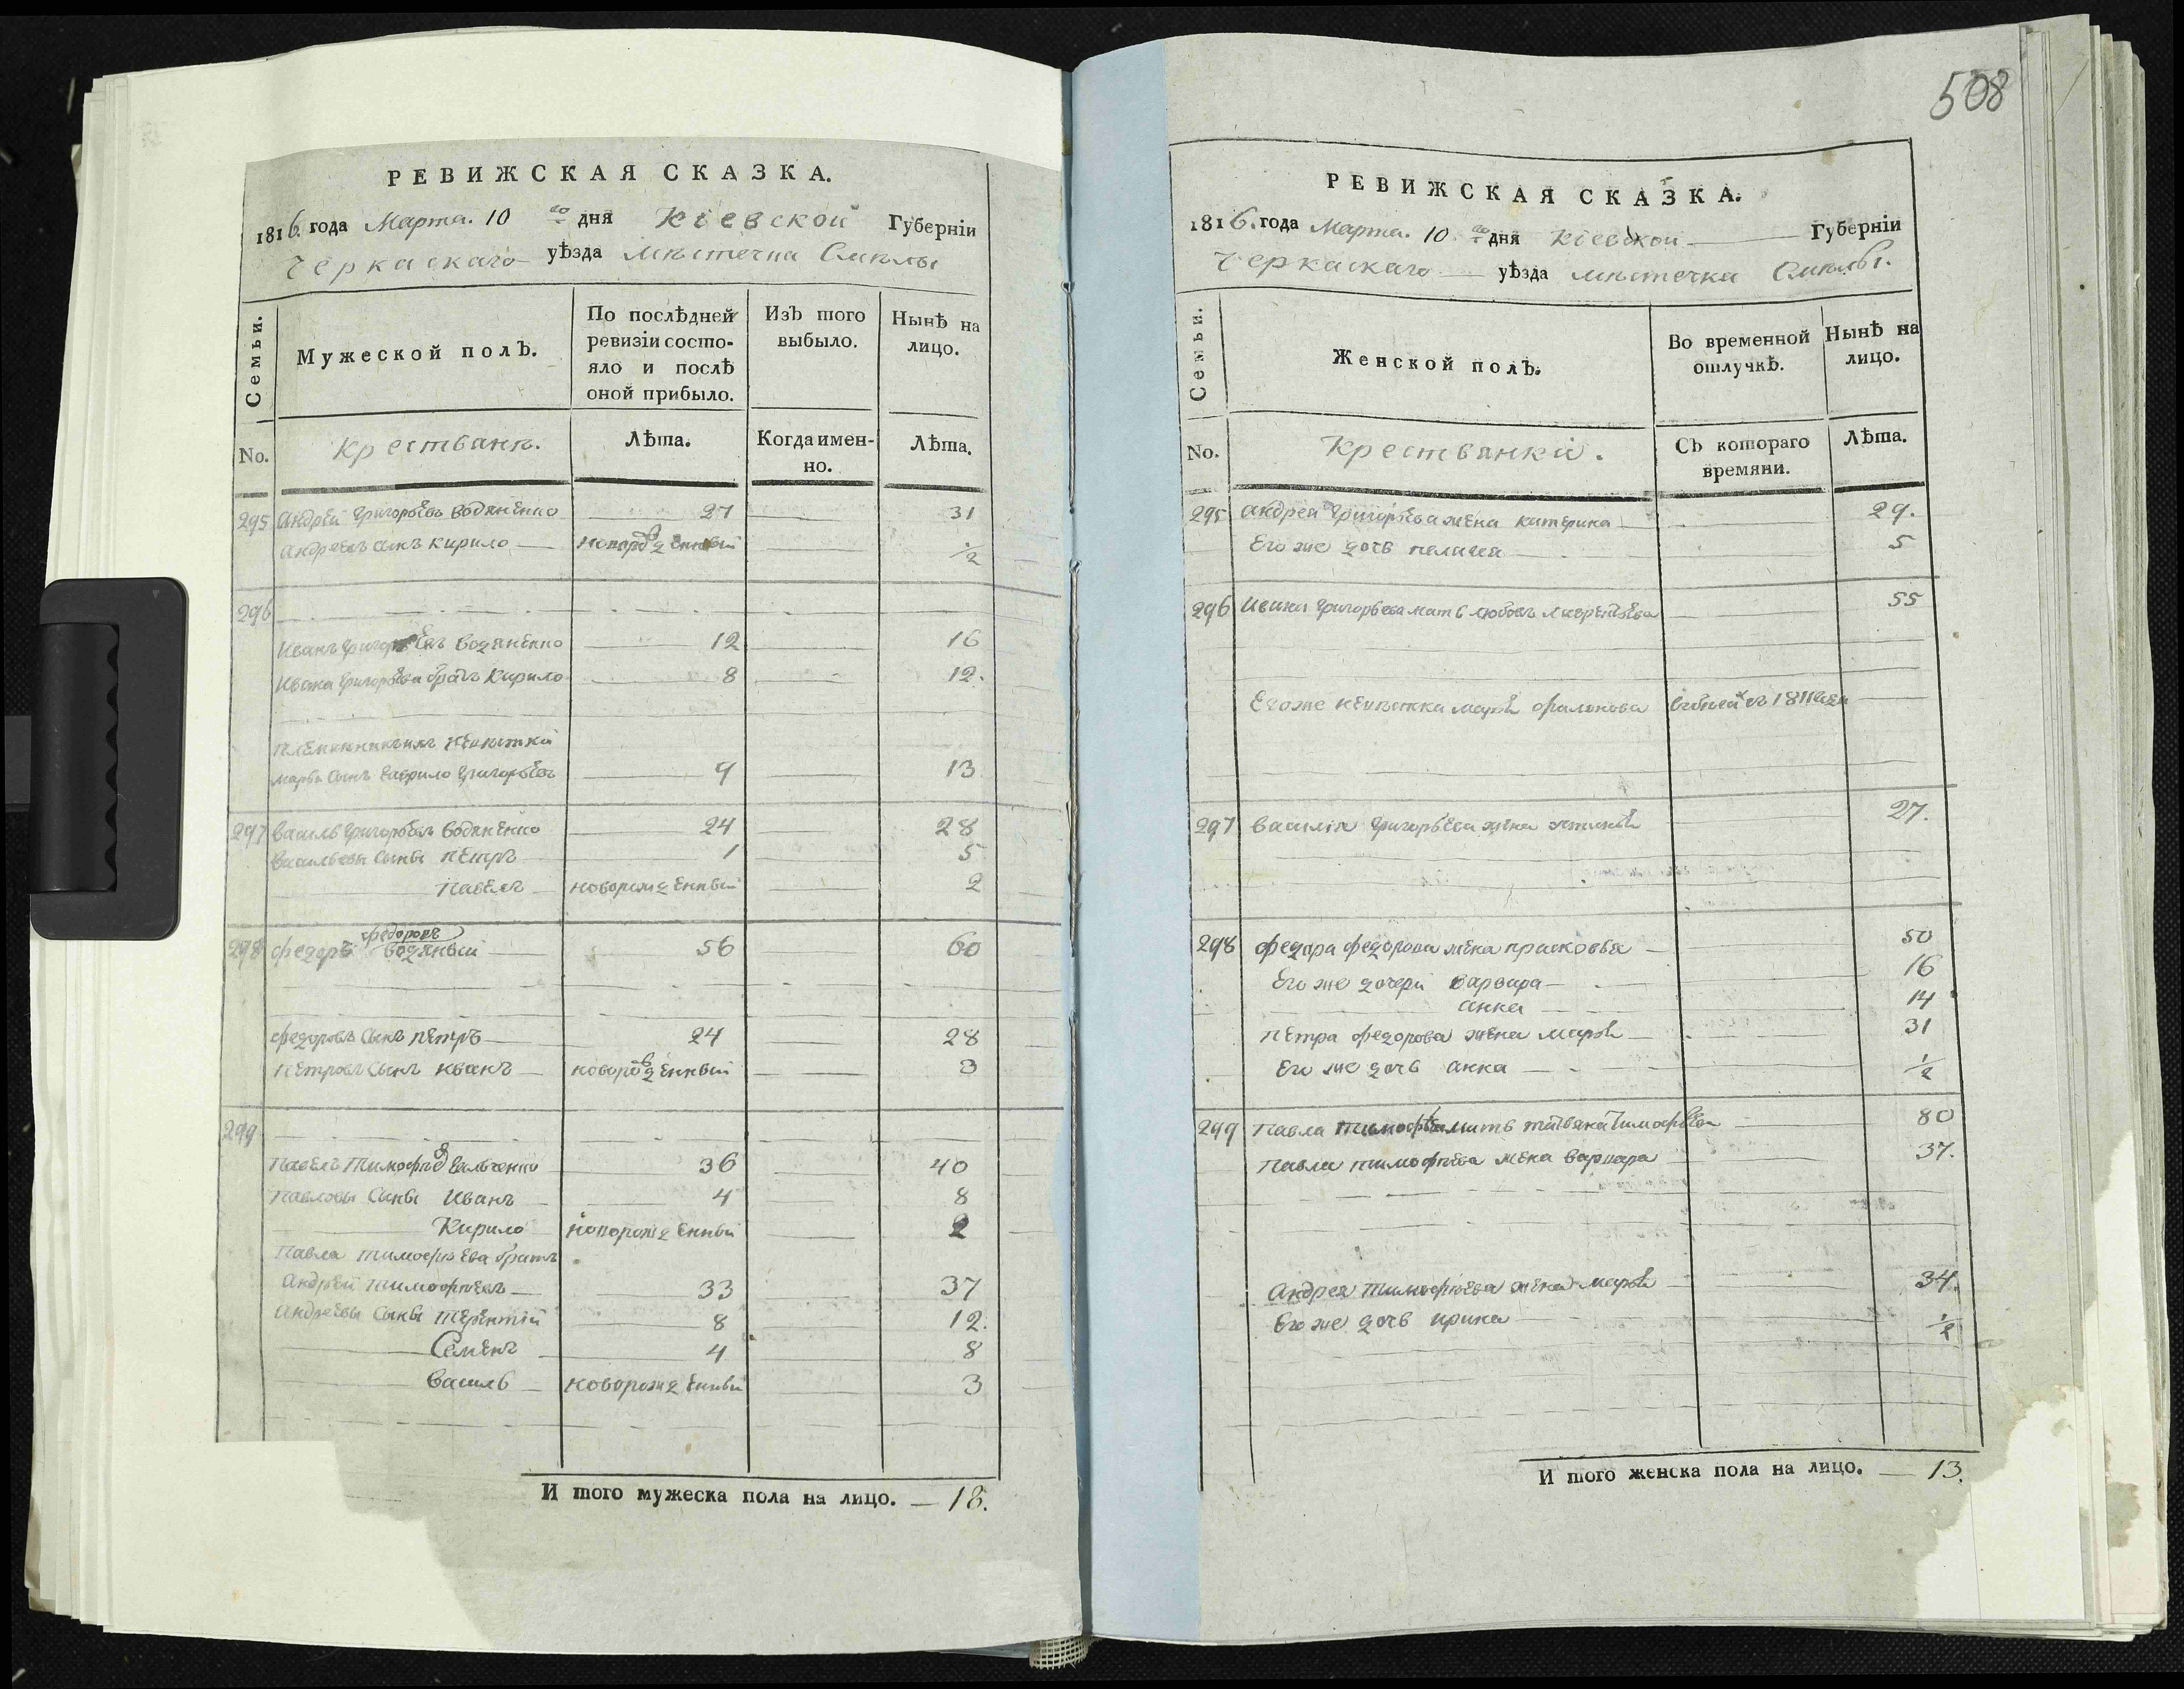 508
РЕВИЖСКАЯ СКАЗКА.
1816. года Марта. 10 го дня Кіевской Губерніи
Черкаскаго уѣзда мѣстечка Смѣлы
Семьи.
Мужеской полЪ.
По послѣдней ревизіи состояло и послѣ оной прибыло.
ИзЪ того выбыло.
НынѢ на лицо.
No.
Крестьянъ.
Лѣта.
Когда именно.
Лѣта.
295 Андрѣй Григорьевъ Водяненко 27 31
Андреевъ сынъ Кирило новорожденный ½
296
Иванъ Григорьевъ Водяненко 12 16
Ивана Григорьева братъ Кирило 8 12.
племянникъ ихъ невѣстки
марвы сынъ Гаврило Григорьевъ 9 13
297 Василь Григорьевъ Водяненко 24 28
Васильевы сыны Петръ 1 5
Павелъ новорожденный 2
298 Федоръ Федоровъ Водяный 56 60
Федоровъ сынъ Петръ 24 28
Петровъ сынъ Иванъ новорожденный 3
299
Павелъ Тимофѣевъ 36 40
Павловы сыны Иванъ 4 8
Кирило новорожденный 2
Павла Тимофѣева братъ
Андрей Тимофѣевъ 33 37
Андреевы сыны Терентій 8 12.
Семенъ 4 8
Василь новорожденный 3
И того мужеска пола на лицо. — 18.
РЕВИЖСКАЯ СКАЗКА.
1816. года Марта. 10 го дня Кіевской Губерніи
Черкаскаго уѣзда мѣстечка Смѣлы.
Семьи.
Женской полЪ.
Во временной отлучкѣ.
НынѢ на лицо.
No.
Крестьянки.
СЪ котораго времяни.
Лѣта.
295 Андрея Григорьева жена Катерина 29.
Его же дочь Пелагея 5
296 Ивана Григорьева мать Любовь Лаврентьева 55
Его же невѣстка Марѳа Филонова въ 1811
297 Василія Григорьева жена 27.
298 Федора Федорова жена Прасковья 50
Его же дочери Варвара 16
Анна 14
Петра Федорова жена Марѳа 31
Его же дочь Анна ½
299 Павла Тимофѣева мать Татьяна Тимофѣева 80
Павла Тимофѣева жена Варвара 37.
Андрея Тимофѣева жена Марѳа 34.
Его же дочь Ирина ½
И того женска пола на лицо. — 13.